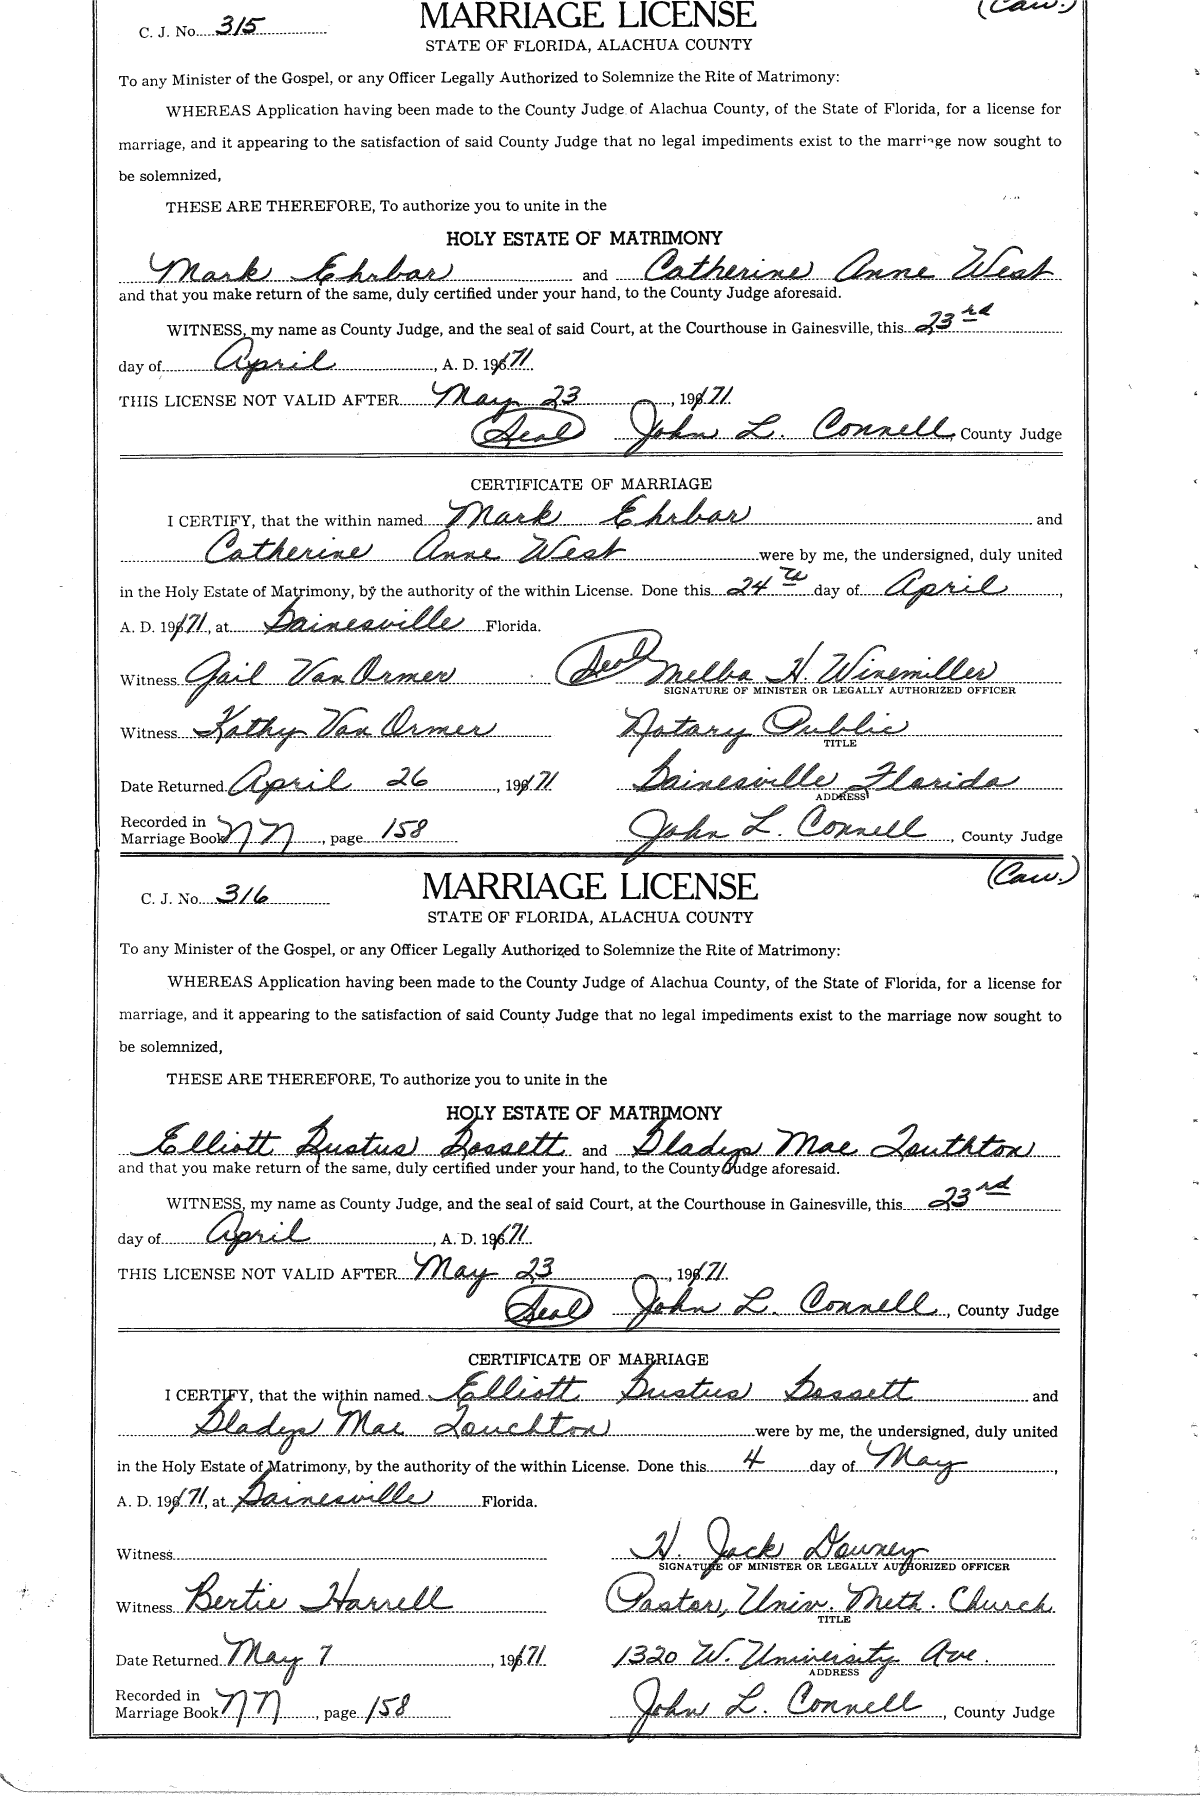 (Caw.)
C. J. No. 315
MARRIAGE LICENSE
STATE OF FLORIDA, ALACHUA COUNTY
To any Minister of the Gospel, or any Officer Legally Authorized to Solemnize the Rite of Matrimony:
WHEREAS Application having been made to the County Judge of Alachua County, of the State of Florida, for a license for
marriage, and it appearing to the satisfaction of said County Judge that no legal impediments exist to the marriage now sought to
be solemnized,
THESE ARE THEREFORE, To authorize you to unite in the
HOLY ESTATE OF MATRIMONY
Mark Ehrbar and Catherine Anne West
and that you make return of the same, duly certified under your hand, to the County Judge aforesaid.
WITNESS, my name as County Judge, and the seal of said Court, at the Courthouse in Gainesville, this 23rd
day of April, A. D. 1971
THIS LICENSE NOT VALID AFTER May 23, 1971
(Seal) John L. Connell County Judge
CERTIFICATE OF MARRIAGE
I CERTIFY, that the within named Mark Ehrbar and
Catherine Anne West were by me, the undersigned, duly united
in the Holy Estate of Matrimony, by the authority of the within License. Done this 24th day of April,
A. D. 1971, at Gainesville Florida.
Witness Gail Van Ormer (Seal) Melba H. Winemiller
SIGNATURE OF MINISTER OR LEGALLY AUTHORIZED OFFICER
Witness Kathy Van Ormer Notary Public
TITLE
Date Returned April 26, 1971 Gainesville, Florida
ADDRESS
Recorded in
Marriage Book NN, page 158 John L. Connell, County Judge
(Caw.)
C. J. No. 316
MARRIAGE LICENSE
STATE OF FLORIDA, ALACHUA COUNTY
To any Minister of the Gospel, or any Officer Legally Authorized to Solemnize the Rite of Matrimony:
WHEREAS Application having been made to the County Judge of Alachua County, of the State of Florida, for a license for
marriage, and it appearing to the satisfaction of said County Judge that no legal impediments exist to the marriage now sought to
be solemnized,
THESE ARE THEREFORE, To authorize you to unite in the
HOLY ESTATE OF MATRIMONY
Elliott Gustus Gossett and Gladys Mae Touchton
and that you make return of the same, duly certified under your hand, to the County Judge aforesaid.
WITNESS, my name as County Judge, and the seal of said Court, at the Courthouse in Gainesville, this 23rd
day of April, A. D. 1971
THIS LICENSE NOT VALID AFTER May 23, 1971
(Seal) John L. Connell, County Judge
CERTIFICATE OF MARRIAGE
I CERTIFY, that the within named Elliott Gustus Gossett and
Gladys Mae Touchton were by me, the undersigned, duly united
in the Holy Estate of Matrimony, by the authority of the within License. Done this 4 day of May,
A. D. 1971, at Gainesville Florida.
Witness H. Jack Downey
SIGNATURE OF MINISTER OR LEGALLY AUTHORIZED OFFICER
Witness Bertie Harrell Pastor, Univ. Meth. Church
TITLE
Date Returned May 7, 1971 1320 W. University Ave.
ADDRESS
Recorded in
Marriage Book NN, page 158 John L. Connell, County Judge